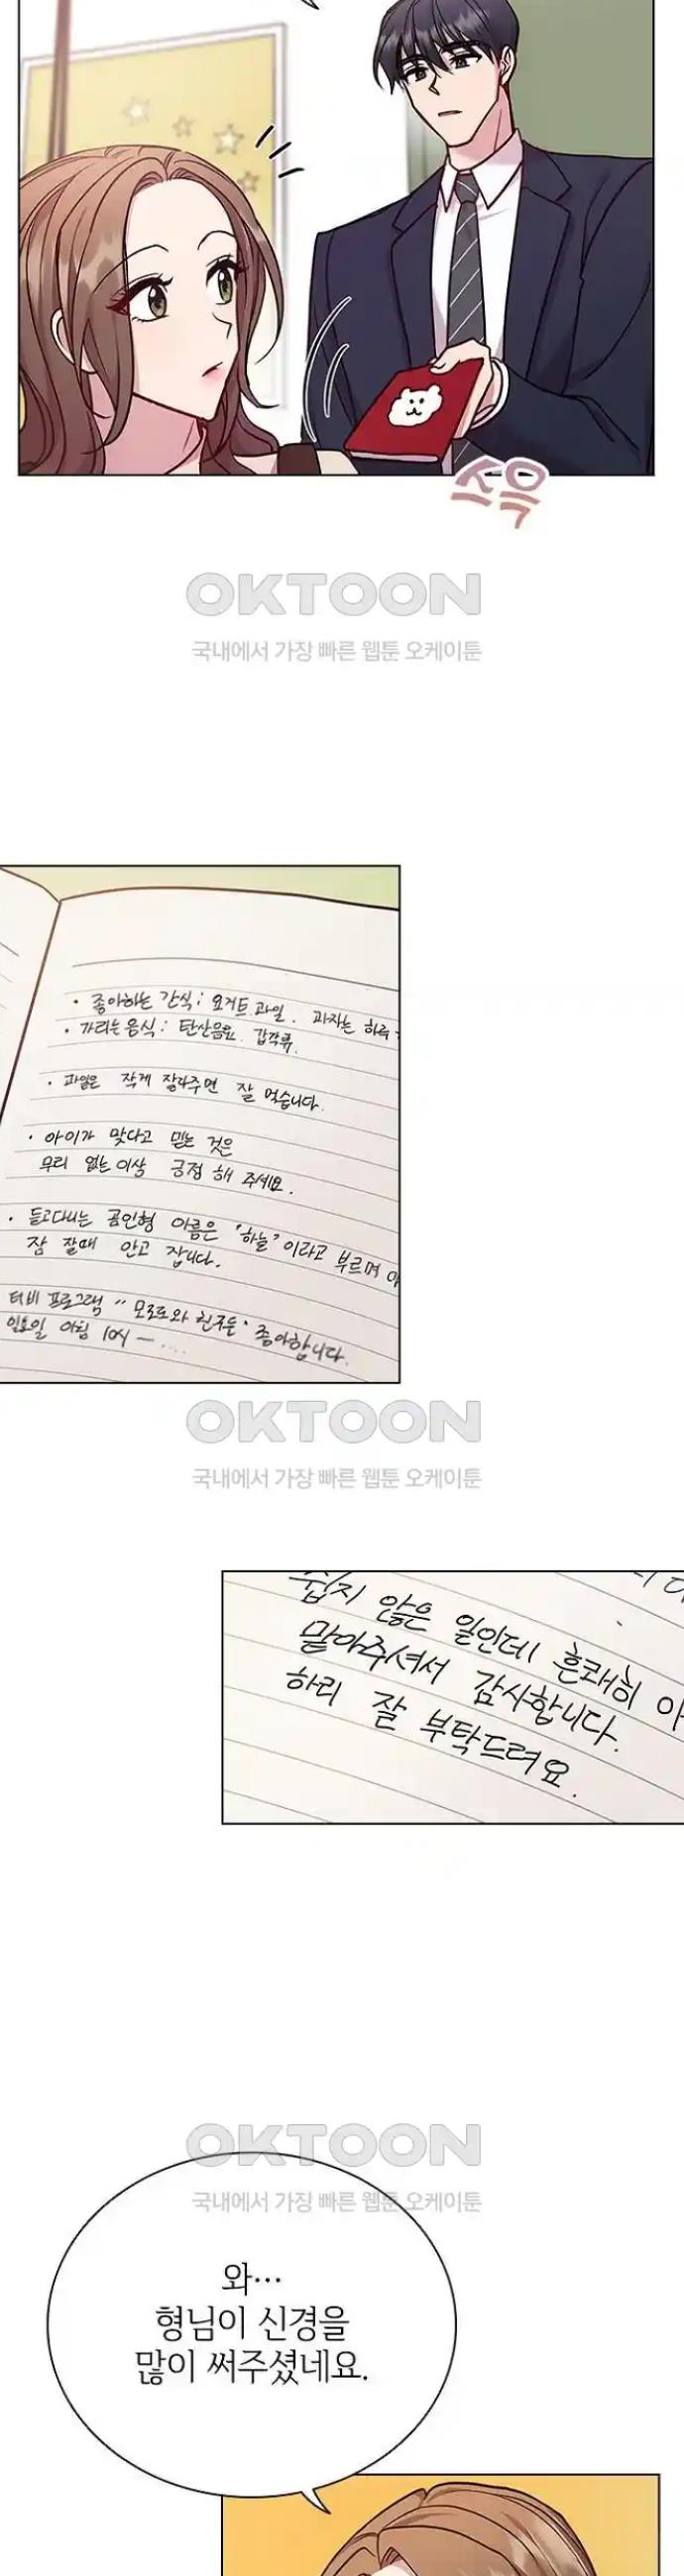 스윽
OKTOON
국내에서 가장 빠른 웹툰 오케이툰
• 좋아하는 간식 : 요거트 과일. 과자는 하루
• 가리는 음식 : 탄산음료. 갑각류.
• 과일은 작게 잘라주면 잘 먹습니다.
• 아이가 맞다고 믿는 것은
무리 없는 이상 긍정 해 주세요.
• 들고다니는 곰인형 이름은 "하늘"이라고 부르며
잠 잘때 안고 잡니다.
티비 프로그램 "모로로와 친구들" 좋아합니다.
일요일 아침 10시 ― ....
OKTOON
국내에서 가장 빠른 웹툰 오케이툰
쉽지 않은 일인데 흔쾌히
맡아주셔서 감사합니다.
하리 잘 부탁드려요.
OKTOON
국내에서 가장 빠른 웹툰 오케이툰
와…
형님이 신경을
많이 써주셨네요.